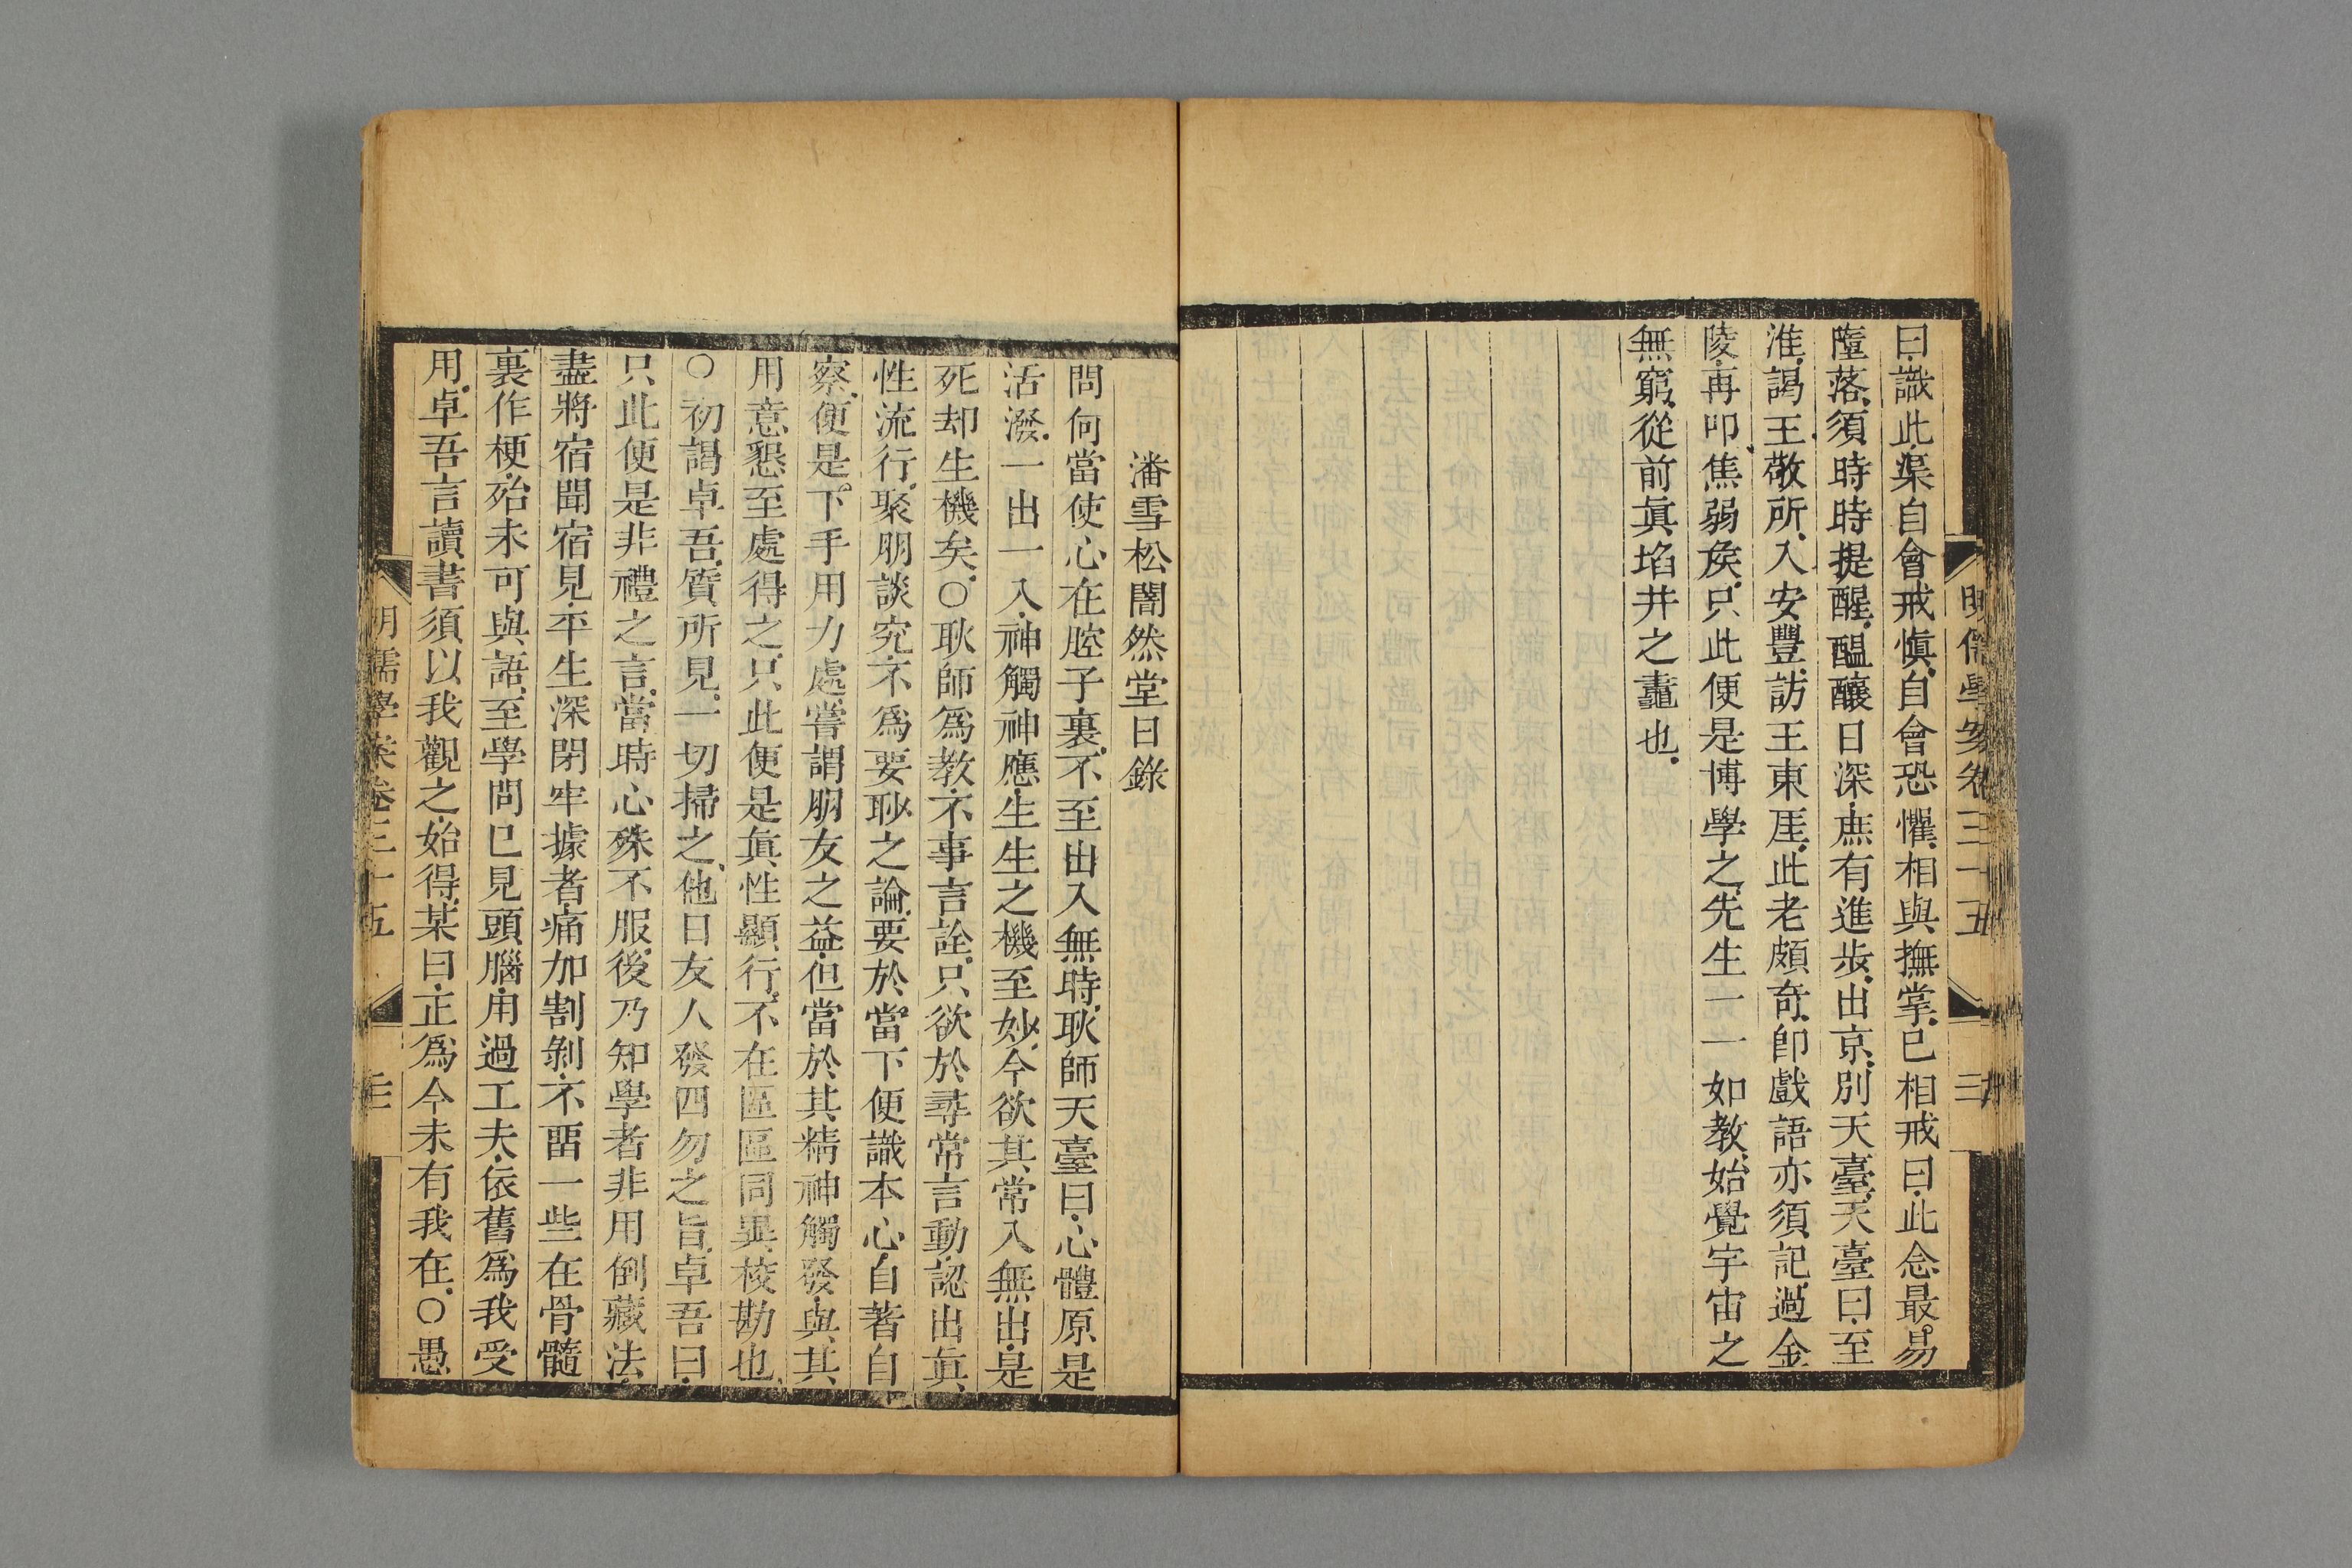 明儒學案卷三十五
曰識此渠自會戒慎自會恐懼相與撫掌已相戒曰此念最易
墮落須時時提醒醖釀日深庶有進步出京別天臺天臺曰至
淮謁王敬所入安豐訪王東厓此老頗奇卽戲語亦須記過金
陵再叩焦弱矦只此便是博學之先生一一如教始覺宇宙之
無窮從前眞埳井之鼃也
潘雪松闇然堂日錄
問何當使心在腔子裏不至出入無時耿師天臺曰心體原是
活潑一出一入神觸神應生生之機至妙今欲其常入無出是
死却生機矣○耿師爲教不事言詮只欲於尋常言動認出眞
性流行聚朋談究不爲要眇之論要於當下便識本心自著自
察便是下手用力處嘗謂朋友之益但當於其精神觸發與其
用意懇至處得之只此便是眞性顯行不在區區同異校勘也
○初謁卓吾質所見一切掃之他日友人發四勿之旨卓吾曰
只此便是非禮之言當時心殊不服後乃知學者非用倒藏法
盡將宿聞宿見平生深閉牢據者痛加割剝不畱一些在骨髓
裏作梗殆未可與語至學問已見頭腦用過工夫依舊爲我受
用卓吾言讀書須以我觀之始得某曰正爲今未有我在○愚
明儒學案卷三十五